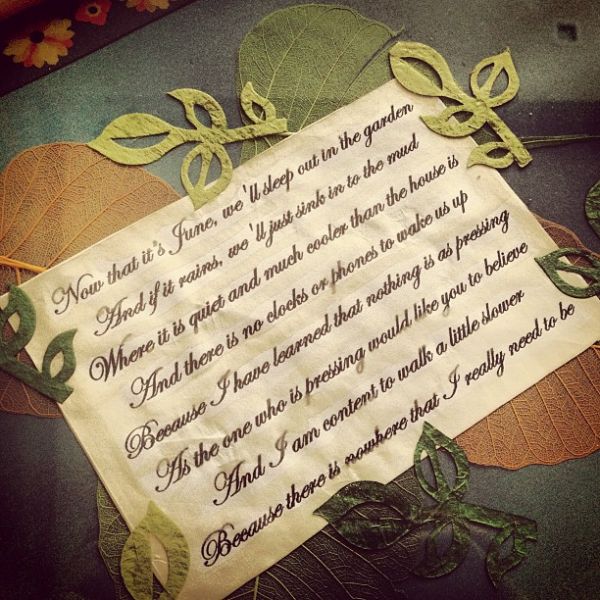 Now that it's June, we'll sleep out in the garden
And if it rains, we'll just sink in to the mud
Where it is quiet and much cooler than the house is
And there is no clocks or phones to wake us up
Because I have learned that nothing is as pressing
As the one who is pressing would like you to believe
And I am content to walk a little slower
Because there is nowhere that I really need to be